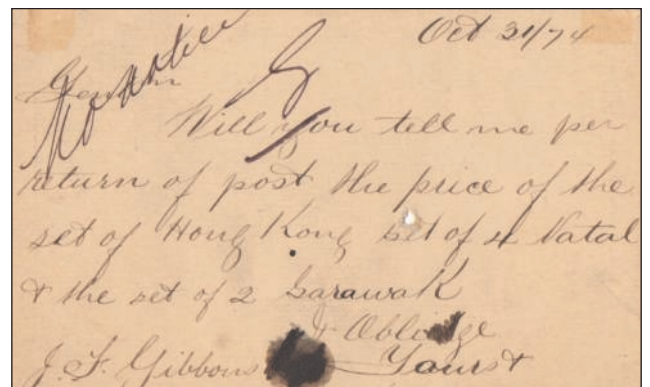 Oct 31/74
No notice
Gentn
Will you tell me per
return of post the price of the
set of Hong Kong set of 4 Natal
& the set of 2 Sarawak
& Oblidge
J. F. Gibbons Yours &